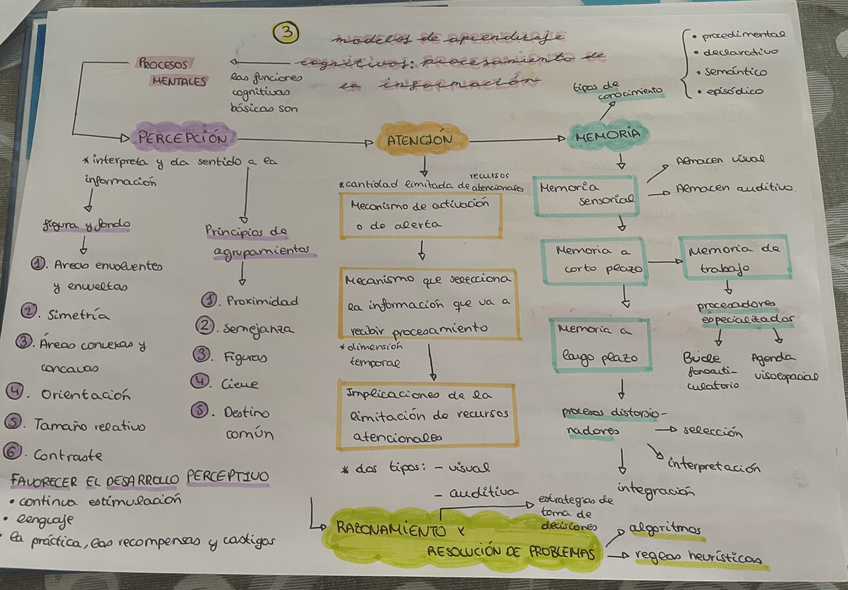 3
modelos de aprendizaje
cognitivos: procesamiento de
la información
PROCESOS
MENTALES
las funciones
cognitivas
básicas son
PERCEPCIÓN
*interpreta y da sentido a la
información
figura y fondo
1. Áreas envolventes
y envueltas
2. Simetría
3. Áreas convexas y
concavas
4. Orientación
5. Tamaño relativo
6. Contraste
Principios de
agrupamientos
1. Proximidad
2. Semejanza
3. Figuras
4. Cierre
5. Destino
común
FAVORECER EL DESARROLLO PERCEPTIVO
• continua estimulación
• lenguaje
• la práctica, las recompensas y castigos
ATENCIÓN
*cantidad limitada de recursos
atencionales
Mecanismo de activación
o de alerta
Mecanismo que selecciona
la información que va a
recibir procesamiento
*dimensión
temporal
Implicaciones de la
limitación de recursos
atencionales
* dos tipos: - visual
- auditiva
MEMORIA
tipos de
conocimiento
• procedimental
• declarativo
• semántico
• episódico
Memoria
sensorial
Almacen visual
Almacen auditivo
Memoria a
corto plazo
Memoria de
trabajo
procesadores
especializados
Bucle
fonoarti-
culatorio
Agenda
visoespacial
Memoria a
largo plazo
procesos distorsio-
nadores
selección
interpretación
integración
RAZONAMIENTO Y
RESOLUCIÓN DE PROBLEMAS
estrategias de
toma de
decisiones
algoritmos
reglas heurísticas